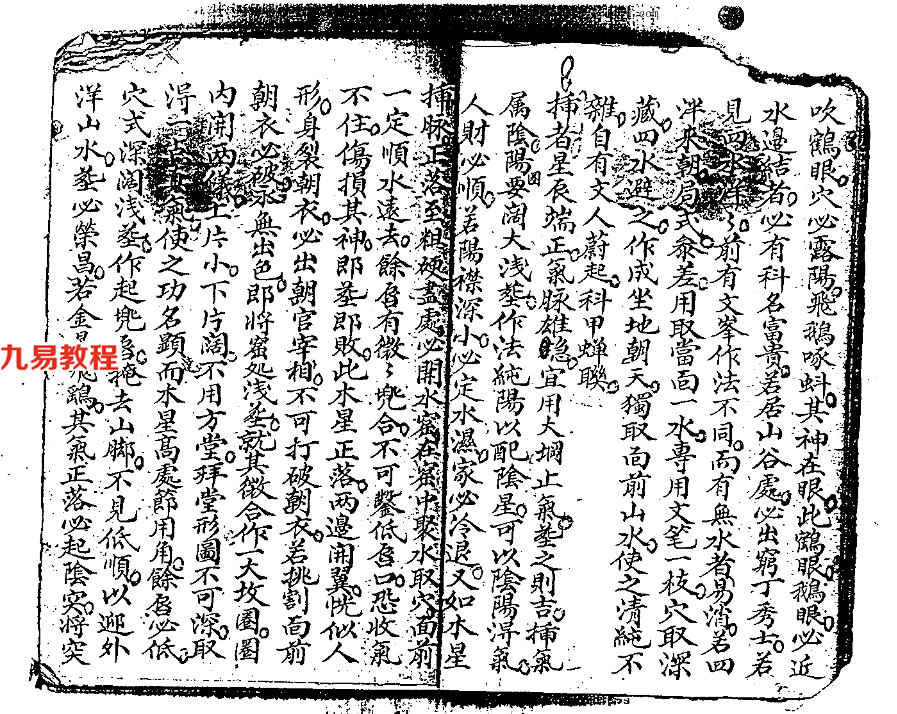 吹鶴眼穴必露陽飛鵝啄蚪其神在眼此鶴眼鵝眼必近
水邊結者必有科名富貴若居山谷處必出窮丁秀士若
見四水前有文峯作法不同而有無水者易消若四
洋來朝局式參差用取當面一水專用文笔一枝穴取深
藏四水避之作成坐地朝天獨取面前山水使之清純不
雜自有文人蔚起科甲蝉聯
揷者星辰端正氣脉雄急宜用大堋止氣塟之則吉揷氣
属陰陽要闊大浅塟作法純陽以配陰星可以陰陽淂氣
人財必順若陽襟深小必定水濕家必冷退又如水星
揷脉正落至粗硬盡處必開水窩在窩中聚水取穴面前
一定順水遠去餘唇有微々兠合不可鑿低唇口恐收氣
不住傷損其神即塟即敗此水星正落两邊開翼恍似人
形身裂朝衣必出朝官宰相不可打破朝衣若挑割面前
朝衣必破永無出色即將窩处浅塟就其微合作一大坟圈圈
内開两儀上片小下片闊不用方堂拜堂形圖不可深取
淂氣使之功名顕而水星高處節用角餘唇必低
穴式深闊浅塟作起兠唇掩去山脚不見低順以迎外
洋山水塟必榮昌若金鵝其氣正落必起陰突將突
九易教程